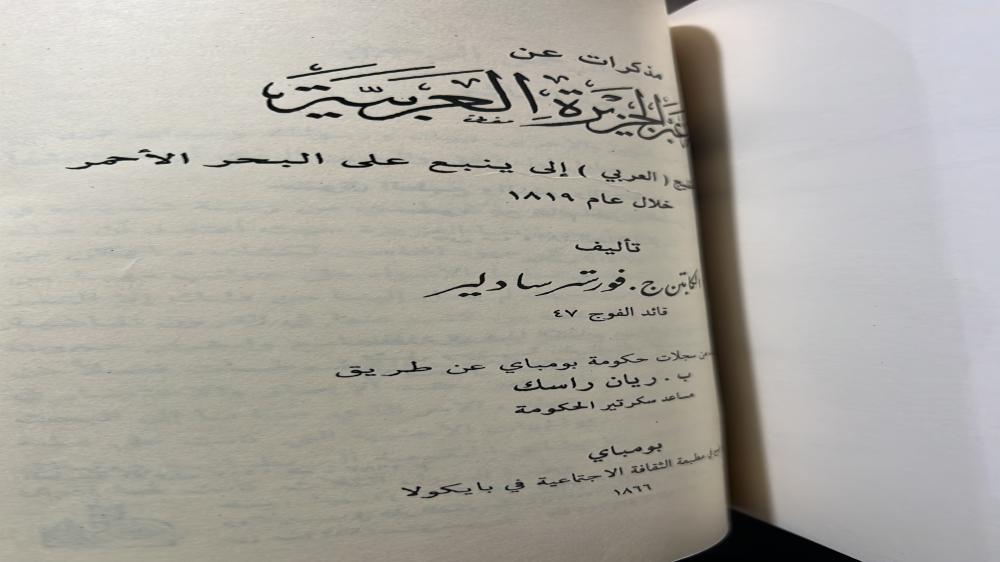 مذكرات عن
عبر الجزيرة العربية
( العربي ) إلى ينبع على البحر الأحمر
خلال عام ١٨١٩
تأليف
الكابتن ج . فورستر سادلير
قائد الفوج ٤٧
من سجلات حكومة بومباي عن طريق
ب . ريان راسك
مساعد سكرتير الحكومة
بومباي
في مطبعة الثقافة الاجتماعية في بايكولا
١٨٦٦